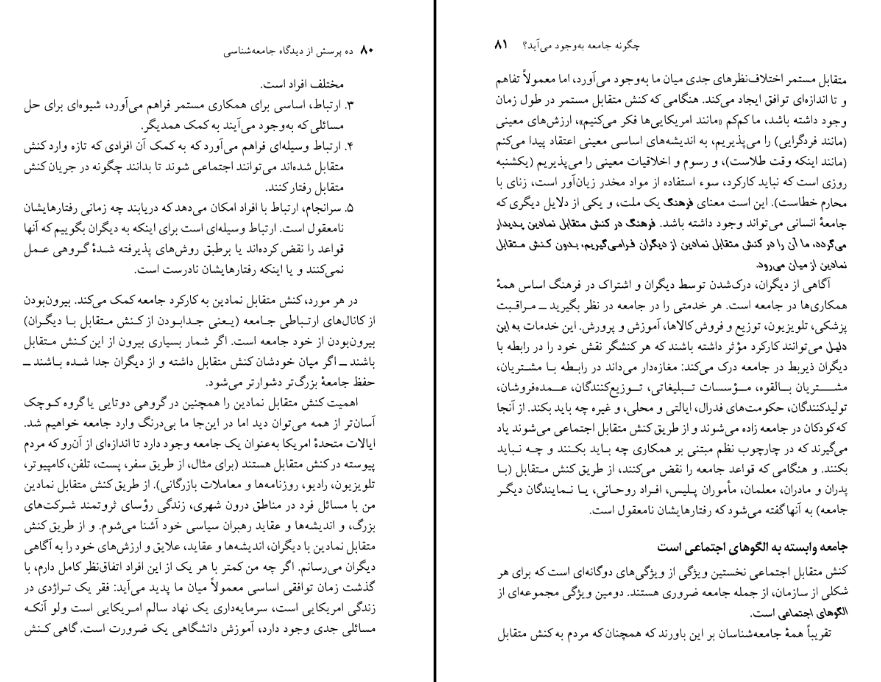 ۸۰ ده پرسش از دیدگاه جامعه‌شناسی
مختلف افراد است.
۳. ارتباط، اساسی برای همکاری مستمر فراهم می‌آورد، شیوه‌ای برای حل
مسائلی که به‌وجود می‌آیند به کمک همدیگر.
۴. ارتباط وسیله‌ای فراهم می‌آورد که به کمک آن افرادی که تازه وارد کنش
متقابل شده‌اند می‌توانند اجتماعی شوند تا بدانند چگونه در جریان کنش
متقابل رفتار کنند.
۵. سرانجام، ارتباط با افراد امکان می‌دهد که دریابند چه زمانی رفتارهایشان
نامعقول است. ارتباط وسیله‌ای است برای اینکه به دیگران بگوییم که آنها
قواعد را نقض کرده‌اند یا برطبق روش‌های پذیرفته شدهٔ گروهی عمل
نمی‌کنند و یا اینکه رفتارهایشان نادرست است.
در هر مورد، کنش متقابل نمادین به کارکرد جامعه کمک می‌کند. بیرون‌بودن
از کانال‌های ارتباطی جامعه (یعنی جدابودن از کنش متقابل با دیگران)
بیرون‌بودن از خود جامعه است. اگر شمار بسیاری بیرون از این کنش متقابل
باشند ــ اگر میان خودشان کنش متقابل داشته و از دیگران جدا شده باشند ــ
حفظ جامعهٔ بزرگ‌تر دشوارتر می‌شود.
اهمیت کنش متقابل نمادین را همچنین در گروهی دوتایی یا گروه کوچک
آسان‌تر از همه می‌توان دید اما در این‌جا ما بی‌درنگ وارد جامعه خواهیم شد.
ایالات متحدهٔ امریکا به‌عنوان یک جامعه وجود دارد تا اندازه‌ای از آن‌رو که مردم
پیوسته در کنش متقابل هستند (برای مثال، از طریق سفر، پست، تلفن، کامپیوتر،
تلویزیون، رادیو، روزنامه‌ها و معاملات بازرگانی). از طریق کنش متقابل نمادین
من با مسائل فرد در مناطق درون شهری، زندگی رؤسای ثروتمند شرکت‌های
بزرگ، و اندیشه‌ها و عقاید رهبران سیاسی خود آشنا می‌شوم. و از طریق کنش
متقابل نمادین با دیگران، اندیشه‌ها و عقاید، علایق و ارزش‌های خود را به آگاهی
دیگران می‌رسانم. اگر چه من کمتر با هر یک از این افراد اتفاق‌نظر کامل دارم، با
گذشت زمان توافقی اساسی معمولاً میان ما پدید می‌آید: فقر یک تراژدی در
زندگی امریکایی است، سرمایه‌داری یک نهاد سالم امریکایی است ولو آنکه
مسائلی جدی وجود دارد، آموزش دانشگاهی یک ضرورت است. گاهی کنش
چگونه جامعه به‌وجود می‌آید؟ ۸۱
متقابل مستمر اختلاف‌نظرهای جدی میان ما به‌وجود می‌آورد، اما معمولاً تفاهم
و تا اندازه‌ای توافق ایجاد می‌کند. هنگامی که کنش متقابل مستمر در طول زمان
وجود داشته باشد، ما کم‌کم «مانند امریکایی‌ها فکر می‌کنیم»، ارزش‌های معینی
(مانند فردگرایی) را می‌پذیریم، به اندیشه‌های اساسی معینی اعتقاد پیدا می‌کنم
(مانند اینکه وقت طلاست)، و رسوم و اخلاقیات معینی را می‌پذیریم (یکشنبه
روزی است که نباید کارکرد، سوء استفاده از مواد مخدر زیان‌آور است، زنای با
محارم خطاست). این است معنای فرهنگ یک ملت، و یکی از دلایل دیگری که
جامعهٔ انسانی می‌تواند وجود داشته باشد. فرهنگ در کنش متقابل نمادین پدیدار
می‌گردد، ما آن را در کنش متقابل نمادین از دیگران فرامی‌گیریم، بدون کنش متقابل
نمادین از میان می‌رود.
آگاهی از دیگران، درک‌شدن توسط دیگران و اشتراک در فرهنگ اساس همهٔ
همکاری‌ها در جامعه است. هر خدمتی را در جامعه در نظر بگیرید ــ مراقبت
پزشکی، تلویزیون، توزیع و فروش کالاها، آموزش و پرورش. این خدمات به این
دلیل می‌توانند کارکرد مؤثر داشته باشند که هر کنشگر نقش خود را در رابطه با
دیگران ذیربط در جامعه درک می‌کند: مغازه‌دار می‌داند در رابطه با مشتریان،
مشتریان بالقوه، مؤسسات تبلیغاتی، توزیع‌کنندگان، عمده‌فروشان،
تولیدکنندگان، حکومت‌های فدرال، ایالتی و محلی، و غیره چه باید بکند. از آنجا
که کودکان در جامعه زاده می‌شوند و از طریق کنش متقابل اجتماعی می‌شوند یاد
می‌گیرند که در چارچوب نظم مبتنی بر همکاری چه باید بکنند و چه نباید
بکنند. و هنگامی که قواعد جامعه را نقض می‌کنند، از طریق کنش متقابل (با
پدران و مادران، معلمان، مأموران پلیس، افراد روحانی، یا نمایندگان دیگر
جامعه) به آنها گفته می‌شود که رفتارهایشان نامعقول است.
جامعه وابسته به الگوهای اجتماعی است
کنش متقابل اجتماعی نخستین ویژگی از ویژگی‌های دوگانه‌ای است که برای هر
شکلی از سازمان، از جمله جامعه ضروری هستند. دومین ویژگی مجموعه‌ای از
الگوهای اجتماعی است.
تقریباً همهٔ جامعه‌شناسان بر این باورند که همچنان که مردم به کنش متقابل